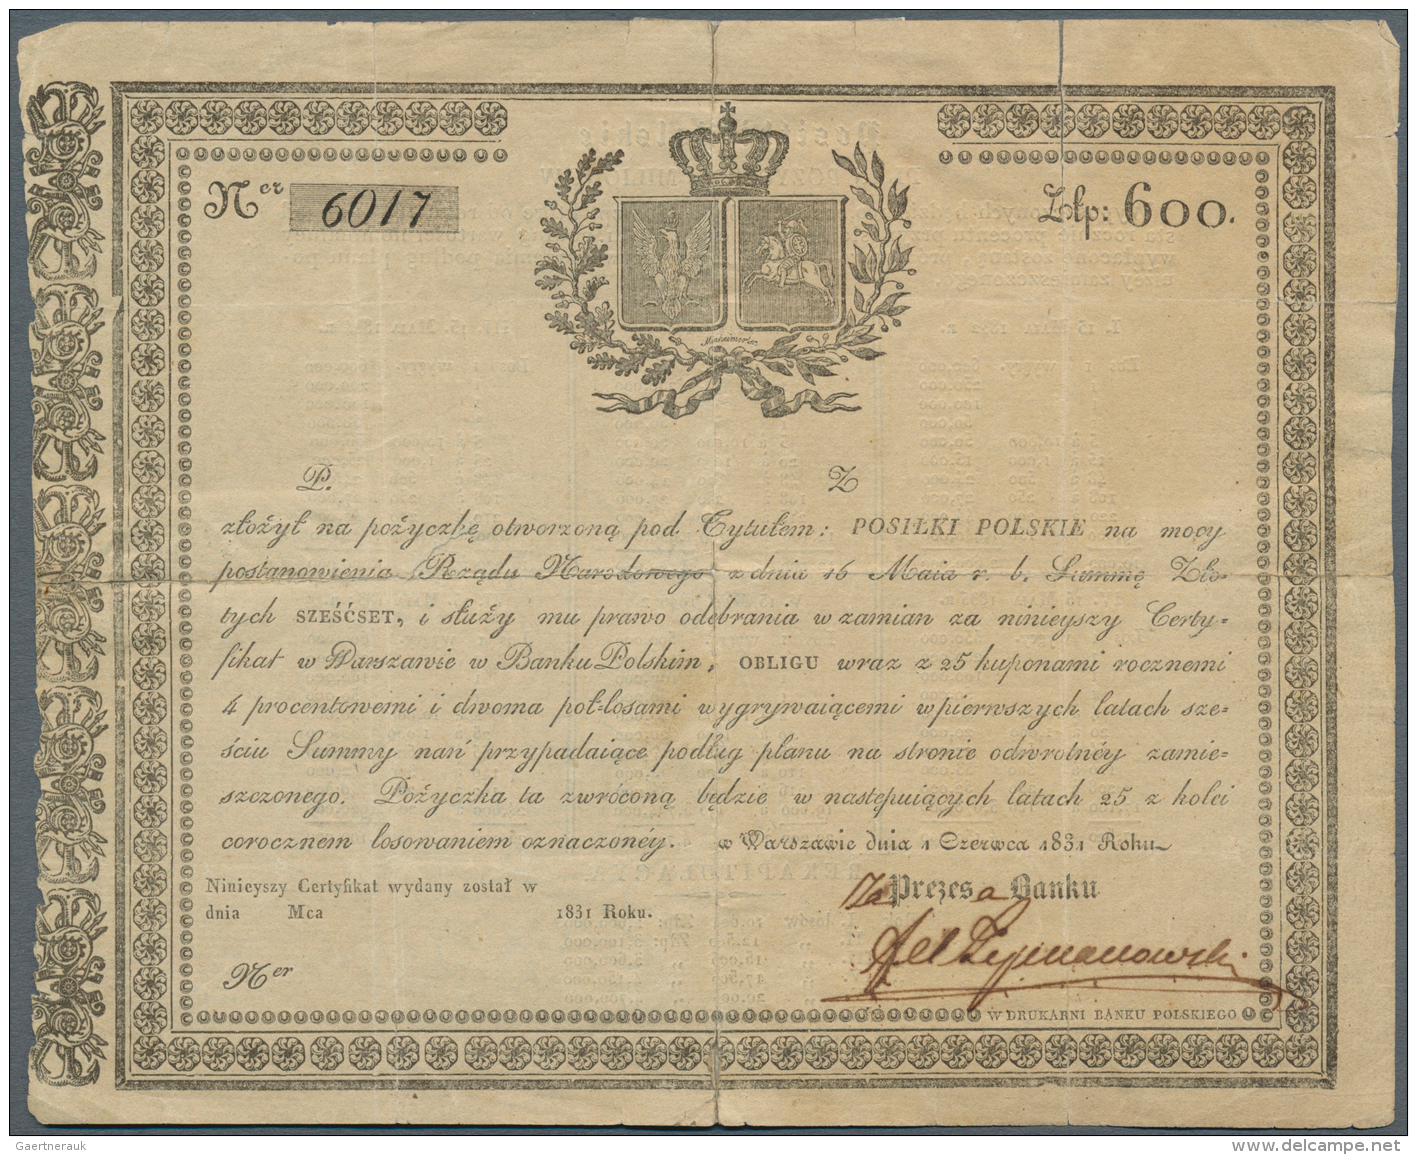 Ner 6017
Złp: 600.
P. Z
złożył na pożyczkę otworzoną pod Tytułem: POSIŁKI POLSKIE na mocy
postanowienia Rządu Narodowego z dnia 16 Maia r. b. Summę Zło-
tych SZEŚĆSET, i służy mu prawo odebrania w zamian za ninieyszy Certy-
fikat w Warszawie w Banku Polskim, OBLIGU wraz z 25 kuponami rocznemi
4 procentowemi i dwoma pół-losami wygrywaiącemi w pierwszych latach sze-
ściu Summy nań przypadaiące podług planu na stronie odwrotnéy zamie-
szczonego. Pożyczka ta zwróconą będzie w następuiących latach 25 z kolei
corocznem losowaniem oznaczonéy. w Warszawie dnia 1 Czerwca 1831 Roku
Ninieyszy Certyfikat wydany został w
dnia Mca 1831 Roku.
Za Prezesa Banku
Szymanowski
Ner
W DRUKARNI BANKU POLSKIEGO
Gaertnerauk
delcampe.net